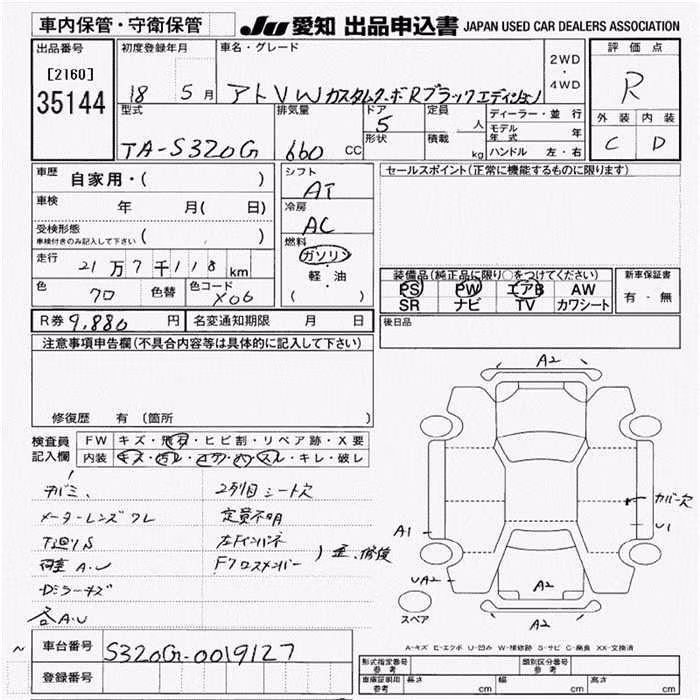 車内保管・守衛保管
JU 愛知 出品申込書 JAPAN USED CAR DEALERS ASSOCIATION
出品番号
[2160]
35144
初度登録年月
18 5 月
車名・グレード
アトレV W カスタムターボRブラックエディション
2WD
・
4WD
評価点
R
外装 内装
C D
型式
TA-S320G
排気量
660 CC
ドア
5
形状
定員
人
積載
kg
ディーラー・並行
モデル年式 年
ハンドル 左・右
車歴
自家用・( )
車検
年 月( 日)
受検形態
車検付きのみ記入して下さい ( )
走行
21 万 7 千 1 1 8 km
色
クロ
色替
色コード
X06
シフト
AT
冷房
AC
燃料
ガソリン
・
軽・油
( )
セールスポイント(正常に機能するものに限ります)
装備品(純正品に限り○をつけてください)
PS PW エアB AW
SR ナビ TV カワシート
新車保証書
有・無
R券 9,880 円
名変通知期限 月 日
後日品
注意事項申告欄(不具合内容等は具体的に記入して下さい)
修復歴 有 (箇所 )
検査員
記入欄
FW キズ・飛石・ヒビ割・リペア跡・X要
内装 キズ・汚レ・コゲ・穴・スレ・キレ・破レ
メーターレンズワレ
2列目シート欠
定員不明
下廻りS
左Fインパネ
荷室A.U
Fクロスメンバー
歪、修復
Dミラーキズ
各A.U
A2
カバー欠
U1
A1
UA2
A2
A2
スペア
A-キズ E-エクボ U-凹み W-補修跡 S-サビ C-腐食 XX-交換済
車台番号
S320G-0019127
登録番号
形式指定番号
参考
類別区分番号
参考
車庫証明用
参考
長さ cm
幅 cm
高さ cm